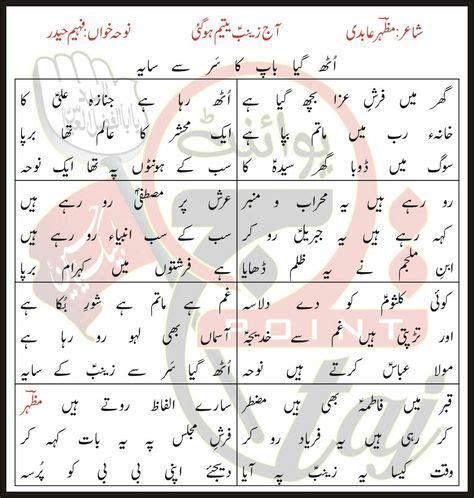 شاعر: مظہرؔ عابدی آج زینبؑ یتیم ہوگئی نوحہ خواں: فہیم حیدر
اُٹھ گیا باپ کا سَر سے سایہ
گھر میں فرشِ عزا بچھ گیا ہے اُٹھ رہا ہے جنازہ علیؑ کا
خانہء رب میں ماتم بپا ہے ایک محشر کا عالم تھا برپا
سوگ میں ڈوبا گھر سیدہؑ کا سب کے ہونٹوں پہ تھا ایک نوحہ
رو رہے ہیں یہ محراب و منبر عرش پر مصطفیؐ رو رہے ہیں
کہہ رہے ہیں یہ جبریلؑ رو کر سب کے سب انبیاءؑ رو رہے ہیں
ابنِ ملجم نے یہ ظلم ڈھایا ہے فرشتوں میں کہرام برپا
کوئی کلثومؑ کو دے دلاسہ غم ہے ماتم ہے شورِ بُکا ہے
اور تڑپتی ہیں غم سے خدیجہؑ آسماں بھی لہو رو رہا ہے
مولا عباسؑ کرتے ہیں نوحہ اُٹھ گیا سَر سے زینبؑ کے سایہ
قبر میں فاطمہؑ بھی ہیں مضطر سارے الفاظ روتے ہیں مظہرؔ
کر رہی ہیں یہ فریاد رو کر فرشِ مجلس پہ یہ بات کہہ کر
وقت کیسا یہ زینبؑ پہ آیا دیجئے اپنی بی بی کو پُرسہ
پوائنٹ
POINT
taj